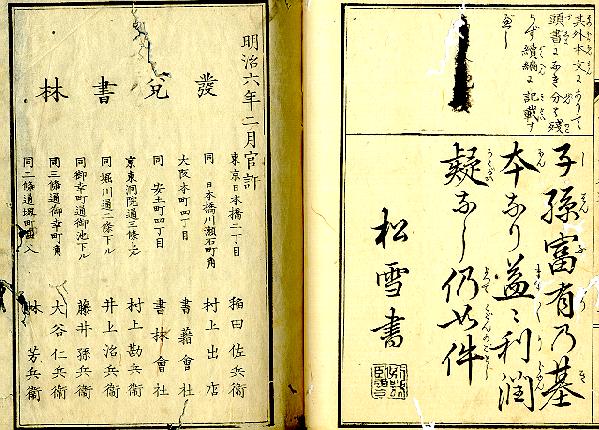 其外本文にありて
頭書になき分ハ残
らず續編に記載す
べし
子孫富有乃基
本なり益々利潤
疑なし仍如件
松雪書
明治六年二月官許
發兌書林
東京日本橋二丁目 稲田佐兵衛
同 日本橋川瀬石町角 村上出店
大阪本町四丁目 書籍會社
同 安土町四丁目 書林會社
京東洞院通三條上 村上勘兵衛
同堀川通二條下ル 井上治兵衛
同御幸町通御池下ル 藤井孫兵衛
同三條通御幸町角 大谷仁兵衛
同二條通堺町西入 林芳兵衛